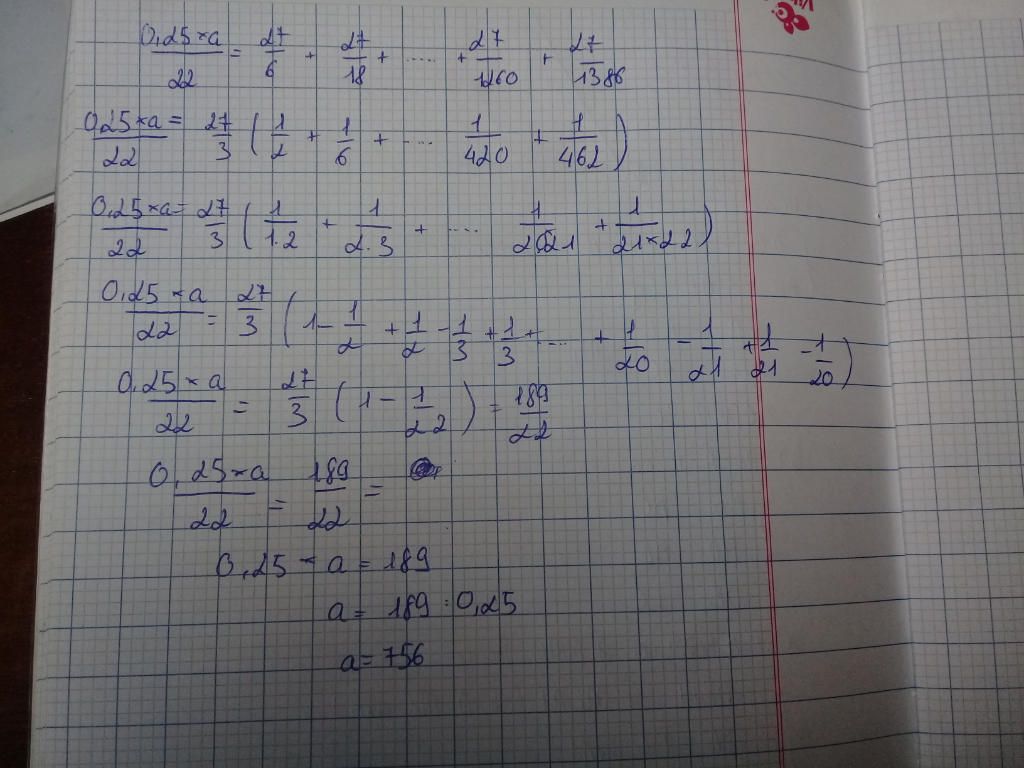 0,25 × a / 22 = 27/6 + 27/18 + ..... + 27/1260 + 27/1386
0,25 × a / 22 = 27/3 ( 1/2 + 1/6 + .... 1/420 + 1/462 )
0,25 × a / 22 = 27/3 ( 1/1.2 + 1/2.3 + .... 1/20 21 + 1/21×22 )
0,25 × a / 22 = 27/3 ( 1 - 1/2 + 1/2 - 1/3 + 1/3 + .... + 1/20 - 1/21 + 1/21 - 1/20 )
0,25 × a / 22 = 27/3 ( 1 - 1/22 ) = 189/22
0,25 × a / 22 = 189/22 =
0,25 × a = 189
a = 189 : 0,25
a = 756